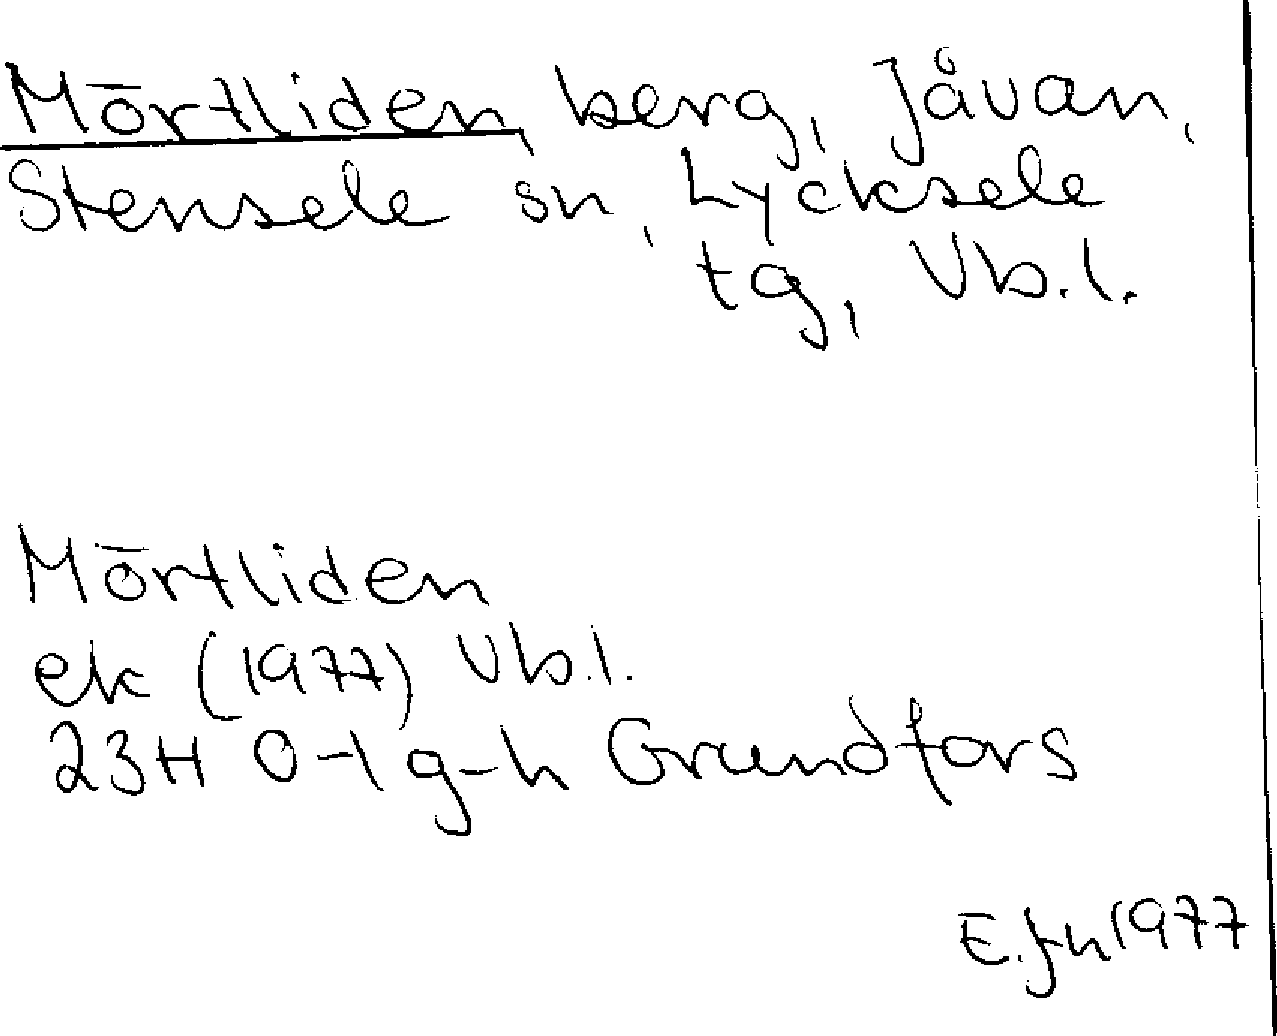 Mörtliden, berg, Jåvan,
Stensele sn, Lycksele
tg, Vb.l.
Mörtliden
ek (1977) Vb.l.
23H 0-1 g-h Grundfors
1977